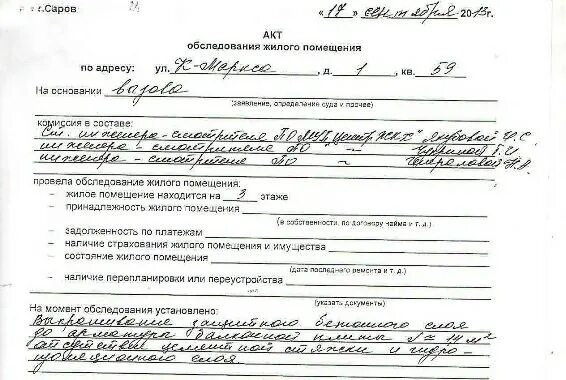 г.Саров « 17 » сентября 2013г.
АКТ
обследования жилого помещения
по адресу: ул. К-Маркса, д. 1, кв. 59
На основании вызова
(заявление, определение суда и прочее)
комиссия в составе:
Ст. инженера-смотрителя ПО МУП "Центр ЖКХ"
инженера-смотрителя ПО —"—
инженера-смотрителя ПО —"—
провела обследование жилого помещения:
– жилое помещение находится на 3 этаже
– принадлежность жилого помещения
(в собственности, по договору найма и т.д.)
– задолженность по платежам
– наличие страхования жилого помещения и имущества
– состояние жилого помещения
(дата последнего ремонта и т.д.)
– наличие перепланировки или переустройства
(указать документы)
На момент обследования установлено:
Выкрашивание защитного бетонного слоя
до арматуры балконной плиты S ≈ м²
отсутствие цементной стяжки и гидро-
изоляционного слоя.